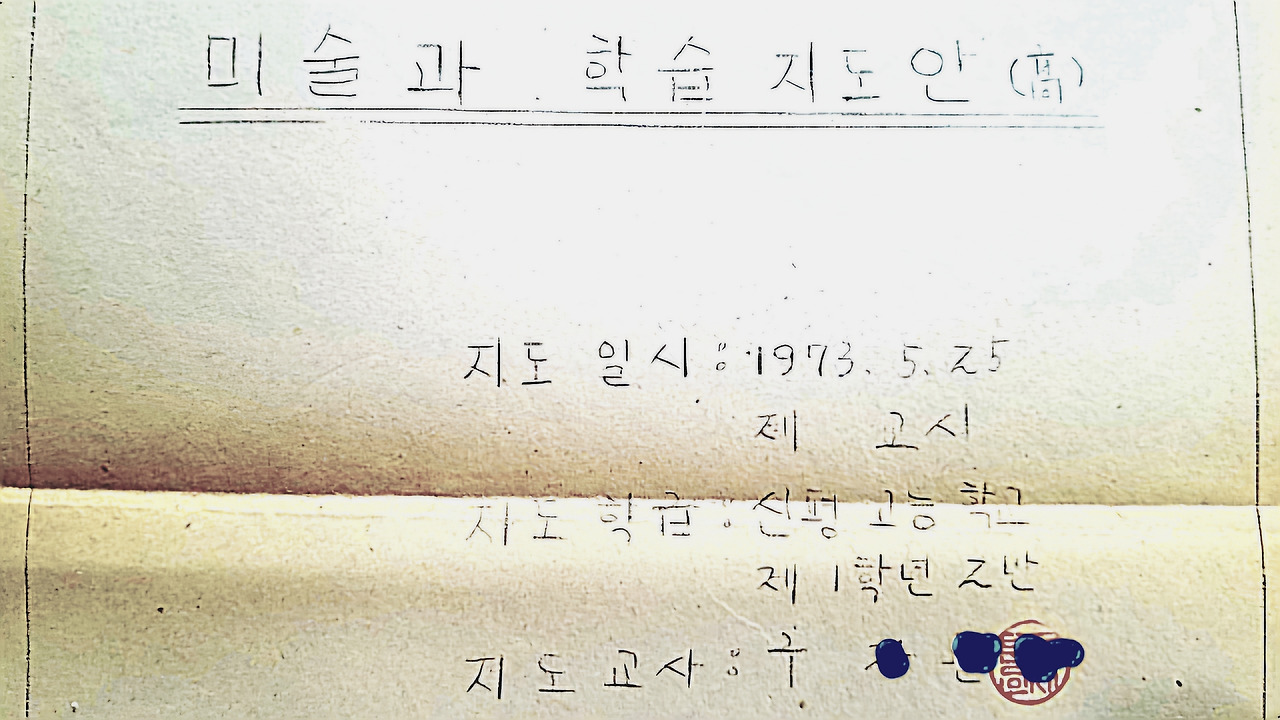 미술과 학습지도안(高)
지도 일시 : 1973. 5. 25
제 교시
지도 학급 : 신평 고등 학교
제 1학년 2반
지도 교사 : 구